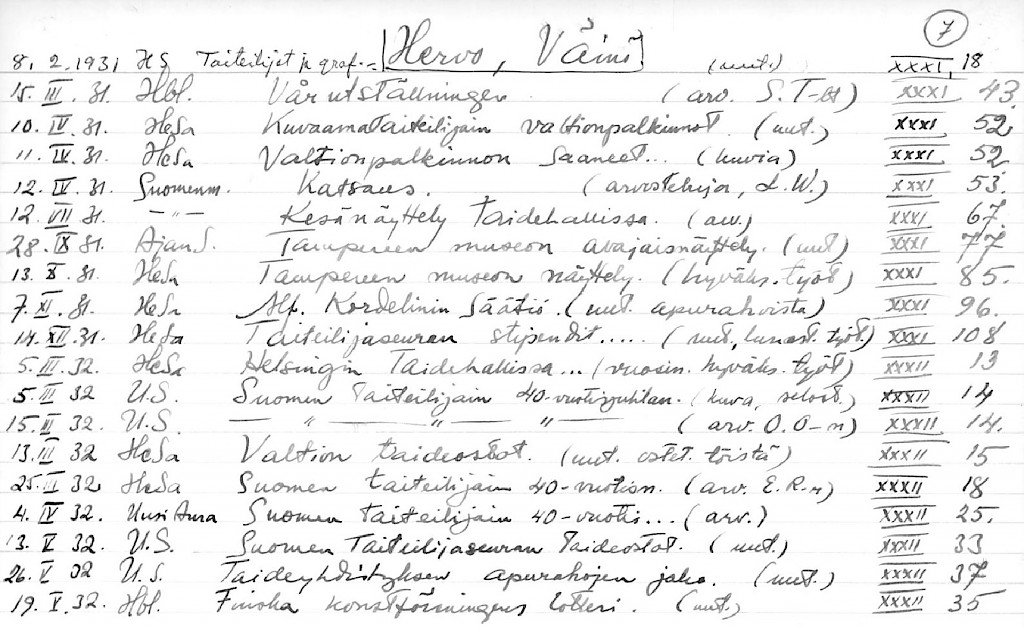 7
Hervo, Väinö
8. 2. 1931 HS Taiteilijat ja graf.- (uut.) XXXI, 18
15. III. 31. Hbl. Vårutställningen (arv. S.T-st) XXXI 43.
10. IV. 31. HeSa Kuvaamataiteilijain valtionpalkinnot. (uut.) XXXI 52
11. IV. 31. HeSa Valtionpalkinnon saaneet... (kuvia) XXXI 52
12. IV. 31. Suomenm. Katsaus. (arvostelija, L.W.) XXXI 53.
12. VII 31. — " — Kesänäyttely Taidehallissa. (arv.) XXXI 67.
28. IX 31. Ajan S. Tampereen museon avajaisnäyttely. (uut) XXXI 77
13. X. 31. HeSa Tampereen museon näyttely. (hyväks. työt) XXXI 85.
7. XI. 31. HeSa Alf. Kordelinin Säätiö. (uut. apurahoista) XXXI 96.
14. XII. 31. HeSa Taiteilijaseuran stipendit..... (uut, lunast. työt.) XXXI 108
5. III. 32. HeSa Helsingin Taidehallissa... (vuosin. hyväks. työt) XXXII 13
5. III 32 U.S. Suomen Taiteilijain 40-vuotisjuhlan. (kuva, selost.) XXXII 14
15. III 32. U.S. — " — " — " — (arv. O.O-n) XXXII 14.
13. III 32 HeSa Valtion taideostot. (uut. ostet. töistä) XXXII 15
25. III 32 HeSa Suomen taiteilijain 40-vuotisn. (arv. E.R-r) XXXII 18
4. IV 32. Uusi Aura Suomen taiteilijain 40-vuotis... (arv.) XXXII 25.
13. V 32. U.S. Suomen Taiteilijaseuran taideostot. (uut.) XXXII 33
26. V 32 U.S. Taideyhdistyksen apurahojen jako. (uut.) XXXII 37
19. V. 32. Hbl. Finska konstföreningens lotteri. (uut.) XXXII 35